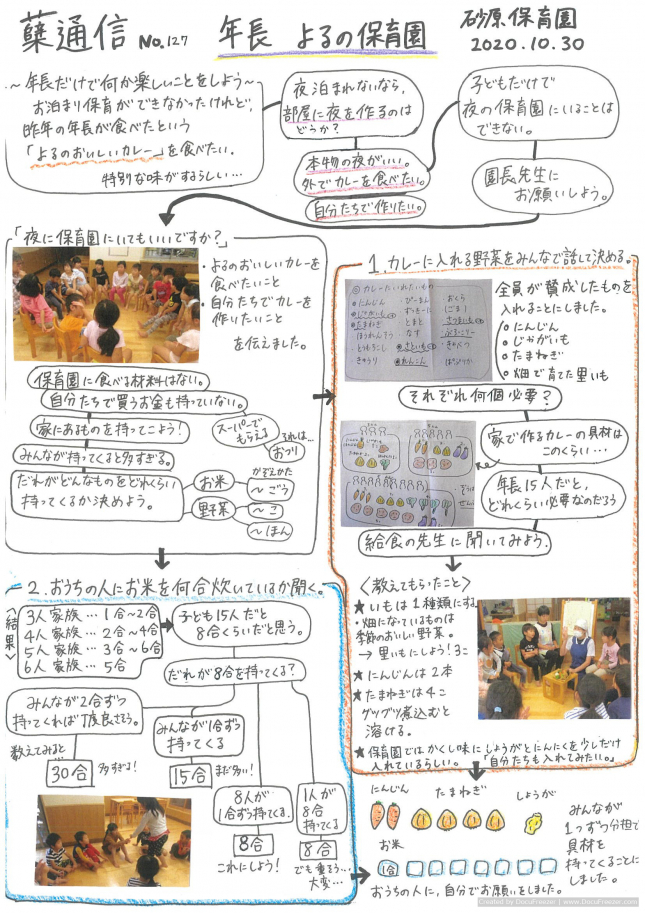 蘖通信 No.127
年長 よるの保育園
砂原保育園
2020.10.30
～年長だけで何か楽しいことをしよう～
お泊まり保育ができなかったけれど、
昨年の年長が食べたという
「よるのおいしいカレー」を食べたい。
特別な味がするらしい…
夜泊まれないなら、
部屋に夜を作るのは
どうか?
本物の夜がいい。
外でカレーを食べたい。
自分たちで作りたい。
子どもだけで
夜の保育園にいることは
できない。
園長先生に
お願いしよう。
「夜に保育園にいてもいいですか?」
・よるのおいしいカレーを
食べたいこと
・自分たちでカレーを
作りたいこと
を伝えました。
保育園に食べる材料はない。
自分たちで買うお金も持っていない。
家にあるものを持ってこよう!
スーパーで
もらえる
それは…
おつり
みんなが持ってくると多すぎる。
だれがどんなものをどれくらい
持ってくるか決めよう。
お米
野菜
かぞえかた
～ごう
～こ
～ほん
1.カレーに入れる野菜をみんなで話して決める。
◎カレーにいれたいもの
にんじん
・ぴーまん
・おくら
じゃがいも
たまねぎ
・とまと
さつまいも
ほうれんそう
・なす
・とうもろこし
さといも
・きゃべつ
・きゅうり
れんこん
全員が賛成したものを
入れることにしました。
・にんじん
・じゃがいも
・たまねぎ
・畑で育てた里いも
それぞれ何個必要?
家で作るカレーの具材は
このくらい…
年長15人だと、
どれくらい必要なのだろう
給食の先生に聞いてみよう。
〈教えてもらったこと〉
★いもは1種類にする
・畑になっているものは
季節のおいしい野菜。
→里いもにしよう!3こ
★にんじんは2本
★たまねぎは4こ
グツグツ煮込むと
溶ける。
★保育園ではかくし味にしょうがとにんにくを少しだけ
入れているらしい。「自分たちも入れてみたい。」
2.おうちの人にお米を何合炊いているか聞く。
〈結果〉
3人家族…1合～2合
4人家族…2合～4合
5人家族…3合～6合
6人家族…5合
子ども15人だと
8合くらいだと思う。
だれが8合を持ってくる?
みんなが2合ずつ
持ってくれば丁度良さそう。
数えてみると
30合 多すぎる!
みんなが1合ずつ
持ってくる
15合 まだ多い!
8人が
1合ずつ持ってくる。
8合
これにしよう!
1人が
8合
持ってくる
8合
でも重そう…
大変…
にんじん
たまねぎ
しょうが
お米
1合
みんなが
1つずつ分担で
具材を
持ってくることに
しました。
おうちの人に、自分でお願いをしました。
Created by DocuFreezer | www.DocuFreezer.com